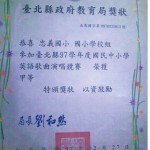 臺北縣政府教育局獎狀
恭喜 忠義國小 國小學校組
參加臺北縣97學年度國民中小學
英語歌曲演唱競賽 榮獲
甲等
特頒獎狀 以資鼓勵
局長 劉和然